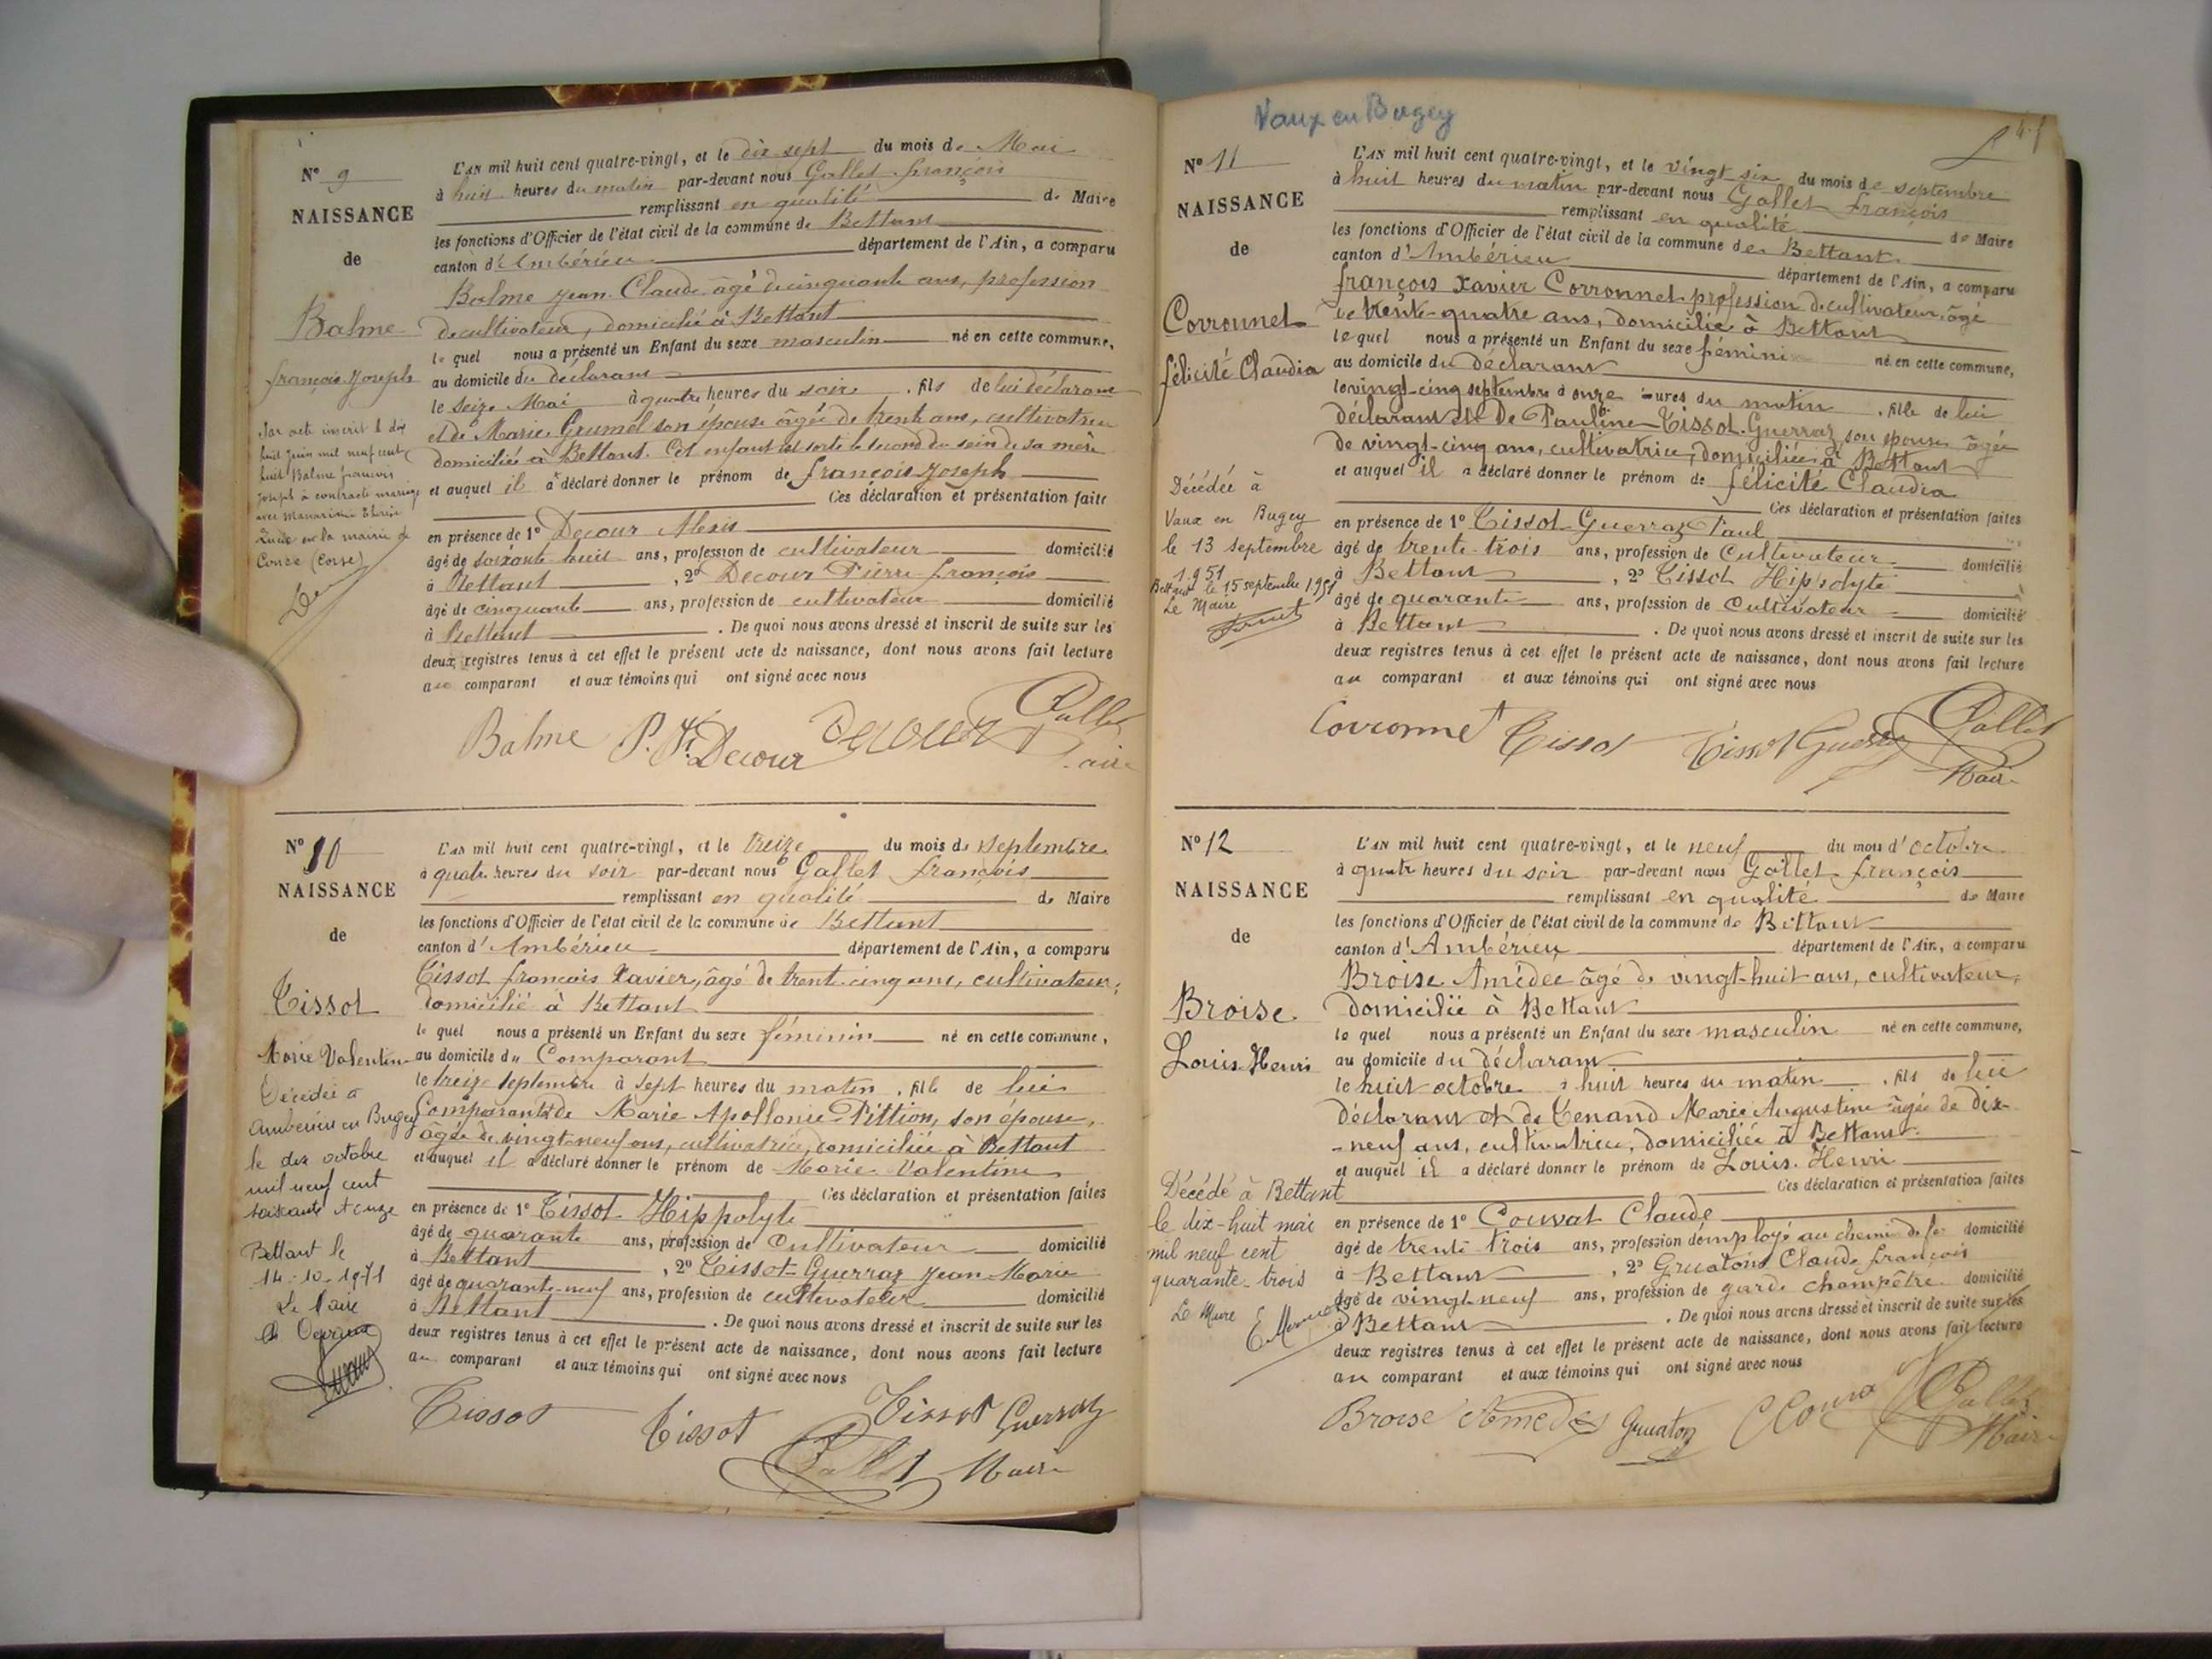 N° 9
NAISSANCE
de
Balme
françois Joseph
Par acte inscrit le dix
huit juin mil neuf cent
huit Balme françois
Joseph à contracté mariage
avec
en la mairie de
(Corse)
L'AN mil huit cent quatre-vingt, et le dix sept du mois de Mai
à huit heures du matin par-devant nous Gallet françois
remplissant en qualité de Maire
les fonctions d'Officier de l'état civil de la commune de Bettant
canton d'Ambérieu département de l'Ain, a comparu
Balme Jean Claude âgé de cinquante ans, profession
de cultivateur, domicilié à Bettant
le quel nous a présenté un Enfant du sexe masculin né en cette commune,
au domicile du déclarant
le seize Mai à quatre heures du soir, fils de lui déclarant
et de Marie Grumel son épouse âgée de trente ans, cultivatrice
domiciliée à Bettant. Cet enfant est sorti le second du sein de sa mère
et auquel il a déclaré donner le prénom de françois Joseph
Ces déclaration et présentation faite
en présence de 1° Decour Alexis
âgé de soixante huit ans, profession de cultivateur domicilié
à Bettant, 2° Decour Pierre françois
âgé de cinquante ans, profession de cultivateur domicilié
à Bettant. De quoi nous avons dressé et inscrit de suite sur les
deux registres tenus à cet effet le présent acte de naissance, dont nous avons fait lecture
au comparant et aux témoins qui ont signé avec nous
Balme P. F. Decour Decour Gallet
Maire
N° 10
NAISSANCE
de
Tissot
Marie Valentine
Décédée à
Ambérieu en Bugey
le dix octobre
mil neuf cent
soixante et onze
Bettant le
14-10-1971
Le Maire
L'AN mil huit cent quatre-vingt, et le treize du mois de septembre
à quatre heures du soir par-devant nous Gallet françois
remplissant en qualité de Maire
les fonctions d'Officier de l'état civil de la commune de Bettant
canton d'Ambérieu département de l'Ain, a comparu
Tissot françois Xavier, âgé de trente cinq ans, cultivateur,
domicilié à Bettant
le quel nous a présenté un Enfant du sexe féminin né en cette commune,
au domicile du Comparant
le treize septembre à sept heures du matin, fille de lui
Comparant et de Marie Apollonie Pittion, son épouse,
âgée de vingt-neuf ans, cultivatrice, domiciliée à Bettant
et auquel il a déclaré donner le prénom de Marie Valentine
Ces déclaration et présentation faites
en présence de 1° Tissot Hippolyte
âgé de quarante ans, profession de cultivateur domicilié
à Bettant, 2° Tissot-Guerraz Jean-Marie
âgé de quarante-neuf ans, profession de cultivateur domicilié
à Bettant. De quoi nous avons dressé et inscrit de suite sur les
deux registres tenus à cet effet le présent acte de naissance, dont nous avons fait lecture
au comparant et aux témoins qui ont signé avec nous
Tissot Tissot Tissot Guerraz
Gallet Maire
Vaux en Bugey
N° 11
NAISSANCE
de
Corronnet
félicité Claudia
Décédée à
Vaux en Bugey
le 13 septembre
1951
Bettant le 15 septembre 1951
Le Maire
L'AN mil huit cent quatre-vingt, et le vingt six du mois de septembre
à huit heures du matin par-devant nous Gallet françois
remplissant en qualité de Maire
les fonctions d'Officier de l'état civil de la commune de Bettant
canton d'Ambérieu département de l'Ain, a comparu
françois Xavier Corronnet profession de cultivateur, âgé
de trente-quatre ans, domicilié à Bettant
le quel nous a présenté un Enfant du sexe féminin né en cette commune,
au domicile du déclarant
le vingt-cinq septembre à onze heures du matin, fille de lui
déclarant et de Pauline Tissot-Guerraz son épouse âgée
de vingt-cinq ans, cultivatrice, domiciliée à Bettant
et auquel il a déclaré donner le prénom de félicité Claudia
Ces déclaration et présentation faites
en présence de 1° Tissot-Guerraz Paul
âgé de trente-trois ans, profession de cultivateur domicilié
à Bettant, 2° Tissot Hippolyte
âgé de quarante ans, profession de cultivateur domicilié
à Bettant. De quoi nous avons dressé et inscrit de suite sur les
deux registres tenus à cet effet le présent acte de naissance, dont nous avons fait lecture
au comparant et aux témoins qui ont signé avec nous
Corronnet Tissot Tissot Guerraz Gallet
Maire
N° 12
NAISSANCE
de
Broise
Louis Henri
Décédé à Bettant
le dix-huit mai
mil neuf cent
quarante-trois
Le Maire
L'AN mil huit cent quatre-vingt, et le neuf du mois d'octobre
à quatre heures du soir par-devant nous Gallet françois
remplissant en qualité de Maire
les fonctions d'Officier de l'état civil de la commune de Bettant
canton d'Ambérieu département de l'Ain, a comparu
Broise Amédée âgé de vingt-huit ans, cultivateur,
domicilié à Bettant
le quel nous a présenté un Enfant du sexe masculin né en cette commune,
au domicile du déclarant
le huit octobre à huit heures du matin, fils de lui
déclarant et de Tenand Marie Augustine âgée de dix-
-neuf ans, cultivatrice, domiciliée à Bettant.
et auquel il a déclaré donner le prénom de Louis. Henri
Ces déclaration et présentation faites
en présence de 1° Couvat Claude
âgé de trente trois ans, profession d'employé au chemin de fer domicilié
à Bettant, 2° Gruaton Claude françois
âgé de vingt-neuf ans, profession de garde champêtre domicilié
à Bettant. De quoi nous avons dressé et inscrit de suite sur les
deux registres tenus à cet effet le présent acte de naissance, dont nous avons fait lecture
au comparant et aux témoins qui ont signé avec nous
Broise Amédée Gruaton Gallet
Maire